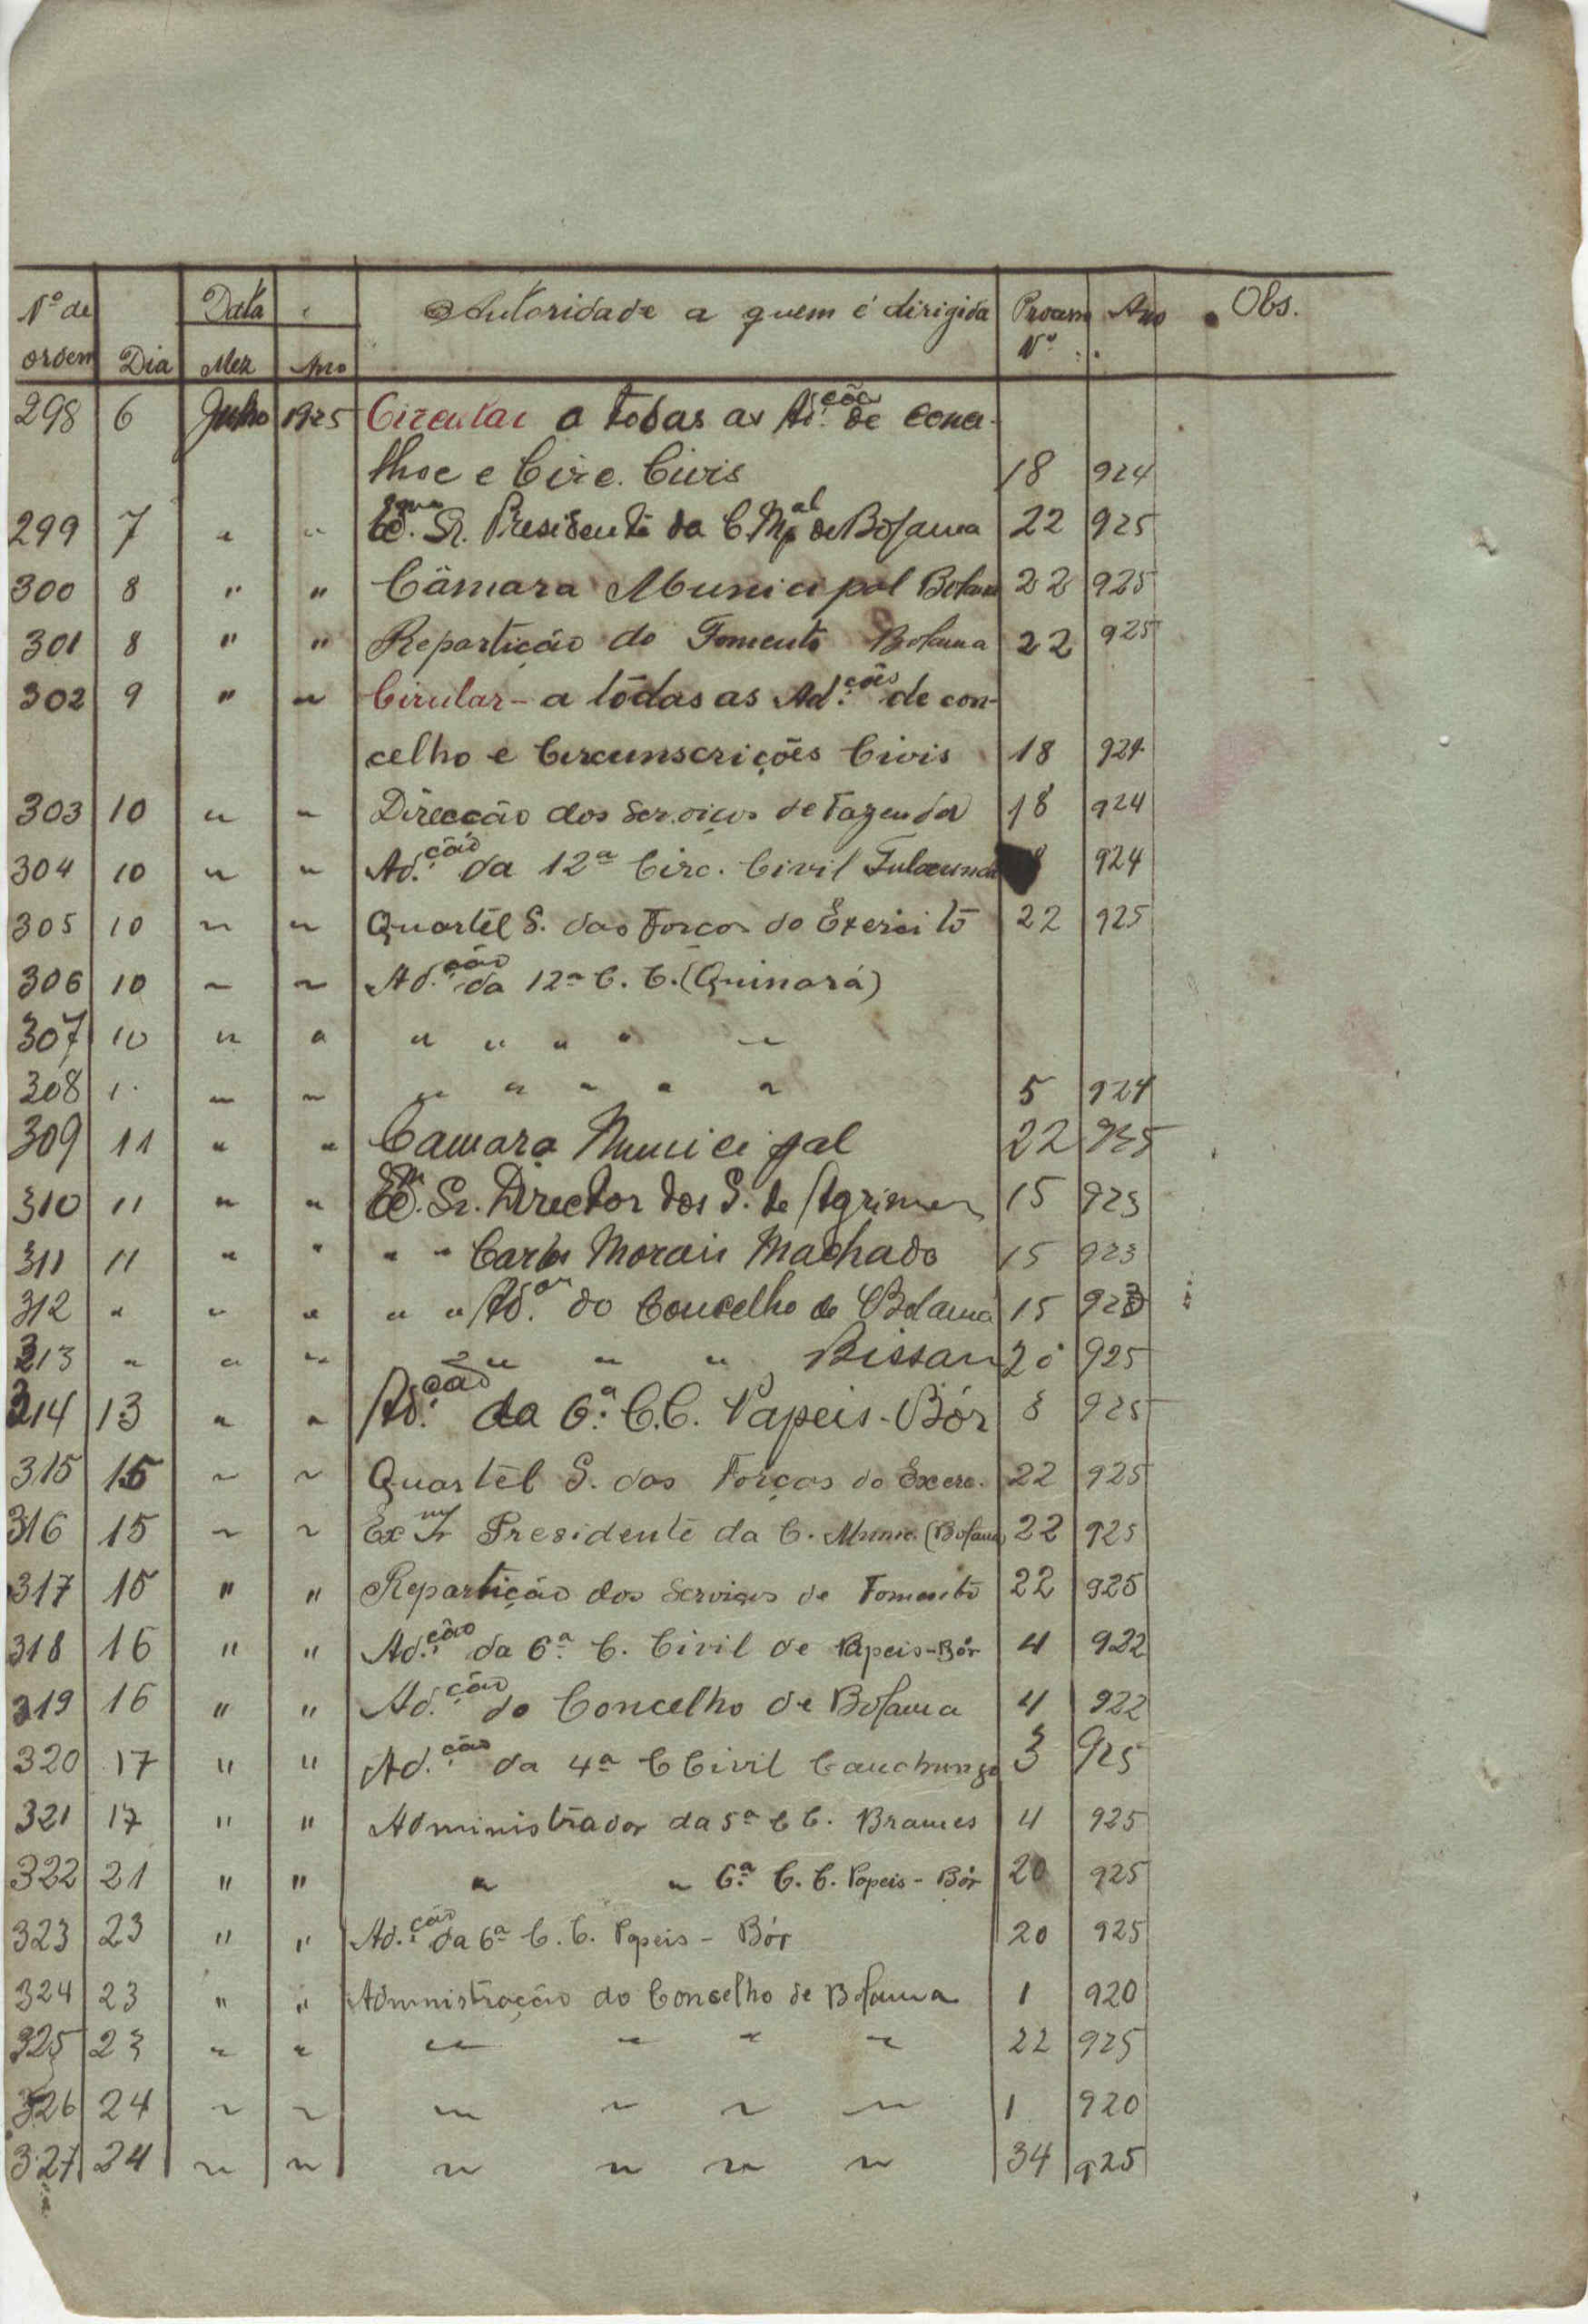 Nº de Data Autoridade a quem é dirigida Process Ano Obs.
ordem Dia Mez Ano Nº
298 6 1925 Circular a todas as Ad.ções de conce-
lhoe e Circ. Civis 18 924
299 7 " " Exmo. Sr. Presidente da C. Mpal de Bolama 22 925
300 8 " " Câmara Municipal Bolama 22 925
301 8 " " Repartição do Fomento Bolama 22 925
302 9 " " Cirular - a tôdas as Ad.ções de con-
celho e Circunscrições Civis 18 924
303 10 " " Direcção dos Serviços de Fazenda 18 924
304 10 " " Ad.ção da 12ª Circ. Civil Fulacunda 924
305 10 " " Quartél G. das Forças do Exercito 22 925
306 10 " " Ad.ção da 12ª C. C. (Quinará)
307 10 " " " " " " "
308 " " " " " " " 5 924
309 11 " " Camara Municipal 22 925
310 11 " " Exmo. Sr. Director dos S. de Agrimen 15 923
311 11 " " " " Carlos Morais Machado 15 923
312 " " " " " Ad.or do Concelho de Bolama 15 923
313 " " " " " " " Bissau 20 925
314 13 " " Ad.ção da 6.ª C.C. Papeis - Bór 3 925
315 15 " " Quartél G. das Forças do Exerc. 22 925
316 15 " " Exmo Sr Presidente da C. Munic. (Bolama) 22 925
317 15 " " Repartição dos Serviços de Fomento 22 925
318 16 " " Ad.ção da 6ª C. Civil de Papeis-Bór 4 922
319 16 " " Ad.ção do Concelho de Bolama 4 922
320 17 " " Ad.ção da 4ª C Civil Cauchungo 3 925
321 17 " " Administrador da 5ª C C. Brames 4 925
322 21 " " " " 6ª C. C. Papeis - Bór 20 925
323 23 " " Ad.ção da 6ª C. C. Papeis - Bór 20 925
324 23 " " Administração do Concelho de Bolama 1 920
325 23 " " " " " " 22 925
326 24 " " " " " " 1 920
327 24 " " " " " " 34 925